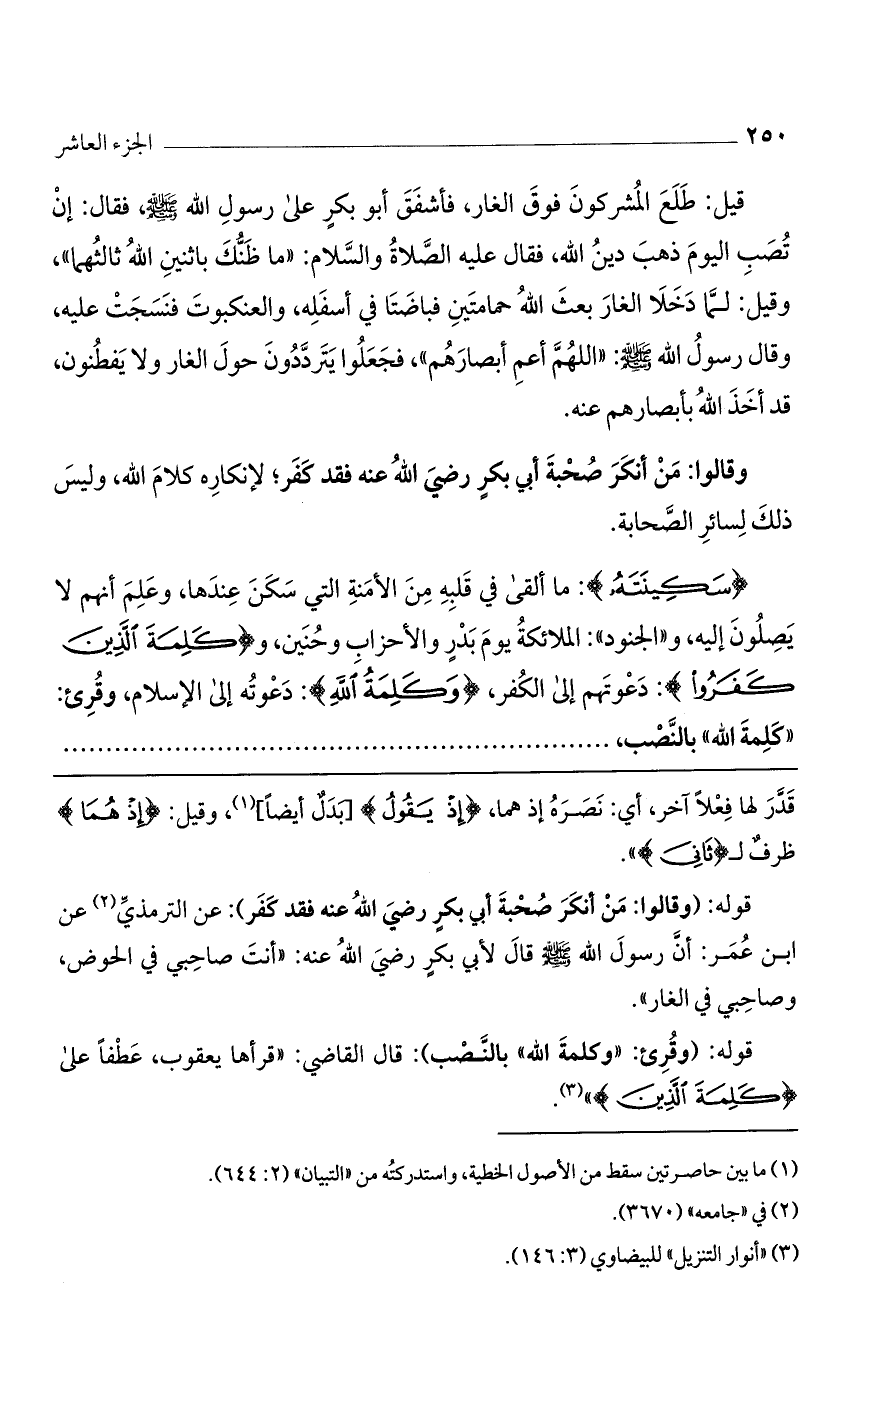 ٢٥٠ الجزء العاشر
قيل: طَلَعَ المُشركونَ فوقَ الغار، فأشفَقَ أبو بكرٍ علىٰ رسولِ الله ﷺ، فقال: إنْ
تُصَبِ اليومَ ذهبَ دينُ الله، فقال عليه الصَّلاةُ والسَّلام: «ما ظَنُّكَ باثنينِ اللهُ ثالثُهما»،
وقيل: لـمَّا دَخَلَا الغارَ بعثَ اللهُ حمامتَينِ فباضَتَا في أسفَلِه، والعنكبوتَ فنَسَجَتْ عليه،
وقال رسولُ الله ﷺ: «اللهُمَّ أعمِ أبصارَهُم»، فجَعَلُوا يَتَردَّدُونَ حولَ الغار ولا يَفطُنون،
قد أخَذَ اللهُ بأبصارهم عنه.
وقالوا: مَنْ أنكَرَ صُحْبةَ أبي بكرٍ رضيَ اللهُ عنه فقد كَفَر؛ لإنكارِه كلامَ الله، وليسَ
ذلكَ لِسائرِ الصَّحابة.
﴿سَكِينَتَهُۥ﴾: ما ألقىٰ في قَلبِهِ مِنَ الأمَنةِ التي سَكَنَ عِندَها، وعَلِمَ أنهم لا
يَصِلُونَ إليه، و«الجنود»: الملائكةُ يومَ بَدْرٍ والأحزابِ وحُنَين، و﴿كَلِمَةَ ٱلَّذِينَ
كَفَرُوا۟﴾: دَعْوتَهم إلىٰ الكُفر، ﴿وَكَلِمَةُ ٱللَّهِ﴾: دَعْوتُه إلىٰ الإسلام، وقُرِئ:
«كَلِمةَ الله» بالنَّصْب، ................................................................
قَدَّرَ لها فِعْلاً آخر، أي: نَصَرَهُ إذ هما، ﴿إِذْ يَقُولُ﴾ [بَدَلٌ أيضاً](١)، وقيل: ﴿إِذْ هُمَا﴾
ظرفٌ لـ﴿ثَانِىَ﴾».
قوله: (وقالوا: مَنْ أنكَرَ صُحْبةَ أبي بكرٍ رضيَ اللهُ عنه فقد كَفَر): عن الترمذيِّ(٢) عن
ابـن عُمَـر: أنَّ رسولَ الله ﷺ قالَ لأبي بكرٍ رضيَ اللهُ عنه: «أنتَ صاحِبي في الحوض،
وصاحِبي في الغار».
قوله: (وقُرِئ: «وكلمةَ الله» بالنَّـصْب): قال القاضي: «قرأها يعقوب، عَطْفاً علىٰ
﴿كَلِمَةَ ٱلَّذِينَ﴾»(٣).
(١) ما بين حاصـرتين سقط من الأصول الخطية، واستدركتُه من «التبيان» (٢: ٦٤٤).
(٢) في «جامعه» (٣٦٧٠).
(٣) «أنوار التنزيل» للبيضاوي (٣: ١٤٦).